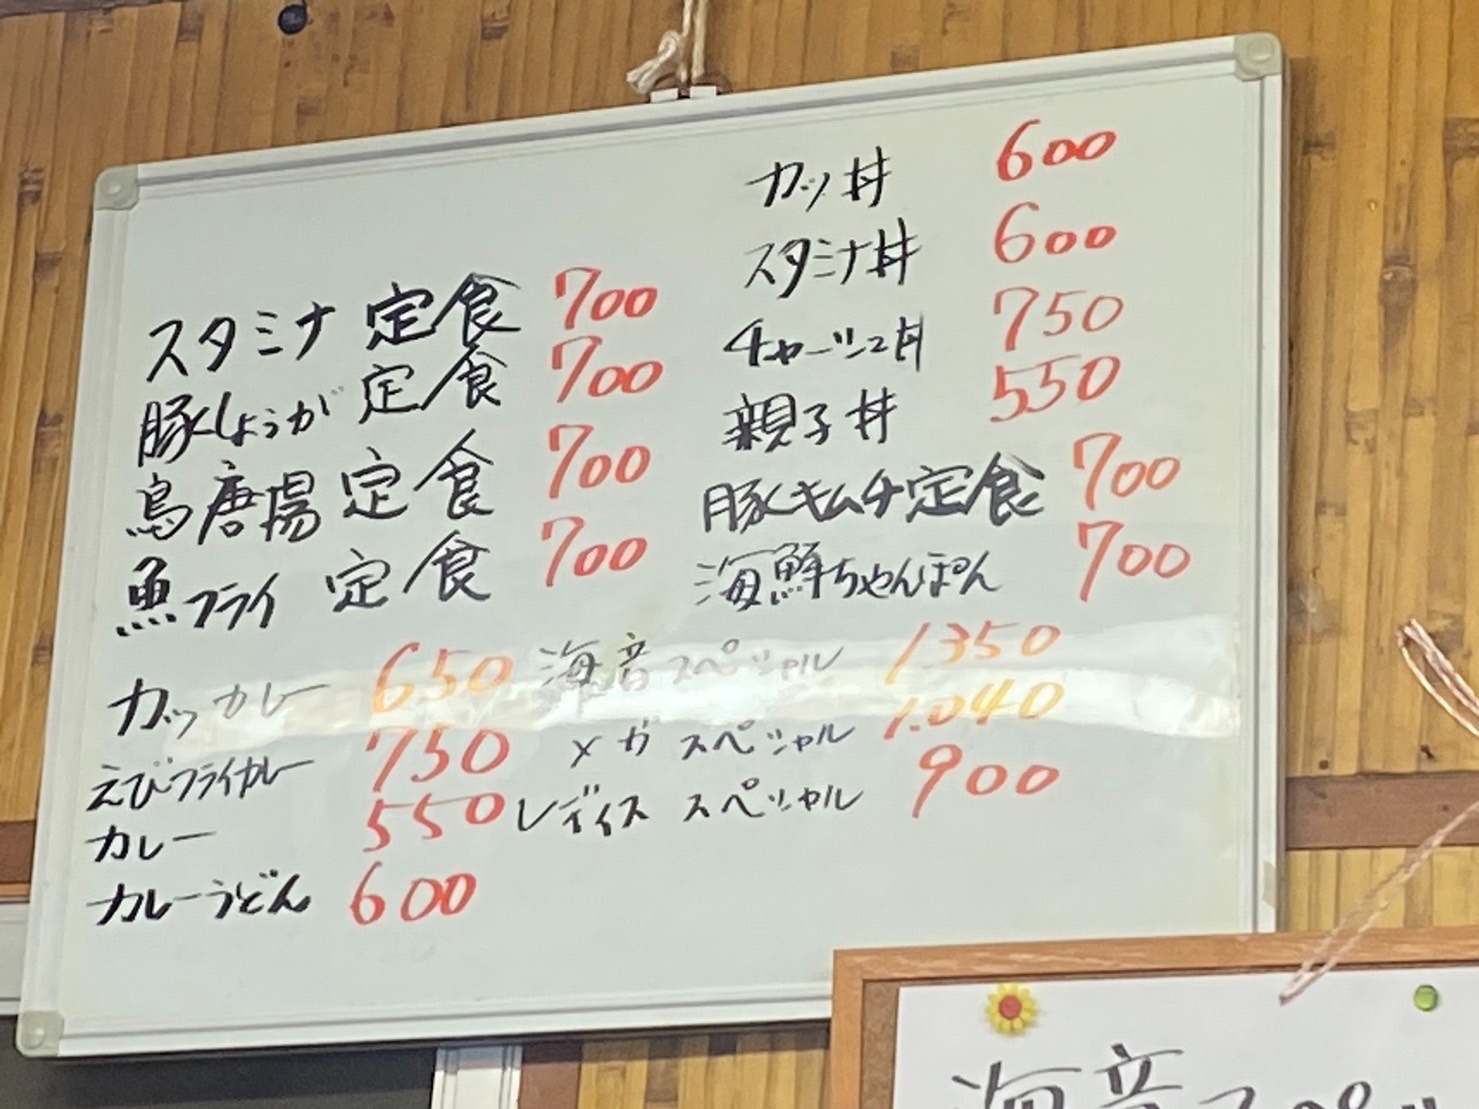 スタミナ 定食 700
豚しょうが 定食 700
鳥唐揚 定食 700
魚フライ 定食 700
カツカレー 650
えびフライカレー 750
カレー 550
カレーうどん 600
カツ丼 600
スタミナ丼 600
チャーシュー丼 750
親子丼 550
豚キムチ定食 700
海鮮ちゃんぽん 700
海音スペシャル 1350
メガ スペシャル 1.040
レディイス スペシャル 900
海音スペ